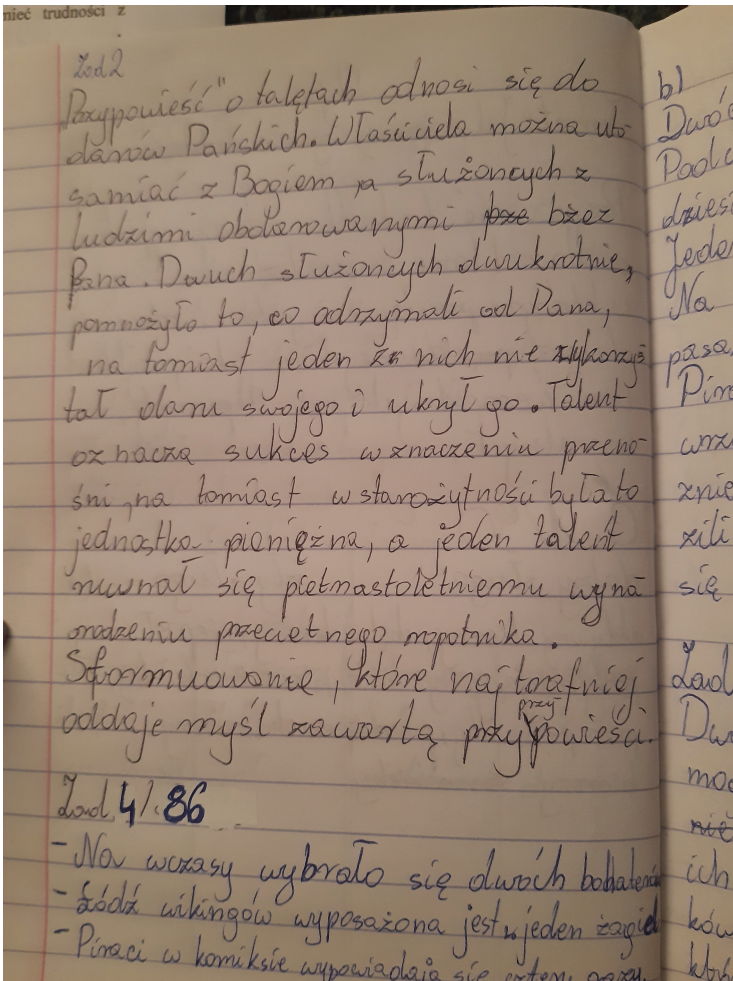 nieć trudności z
Zad 2
"Przypowieść" o talętach odnosi się do
darów Pańskich. Właściciela można uto
samiać z Bogiem, a służoncych z
ludzimi obdarowanymi bżez
Pana. Dwuch służoncych dwukrotnie,
pomnożyło to, co odrzymali od Pana,
na tomiast jeden z nich nie wykorzys
tał daru swojego i ukrył go. Talent
oznacza sukces w znaczeniu przeno
śni, na tomiast w starożytności była to
jednostka pieniężna, a jeden talent
ruwnał się pietnastoletniemu wyna
grodzeniu przecietnego ropotnika.
Sformuowanie, które naj torafniej
oddaje myśl zawartą przy
powieści.
Zad. 4 / s. 86
- Na wczasy wybrało się dwóch bohaterów
- Łódź wikingów wyposażona jest w jeden żagiel
- Piraci w komiksie wypowiadają się cztery razy.
b)
Dwóc
Podc
dziesi
Jeden
Na
pasa
Pira
wrz
znie
zili
się
Zad
Dw
moc
nie
ich
ków